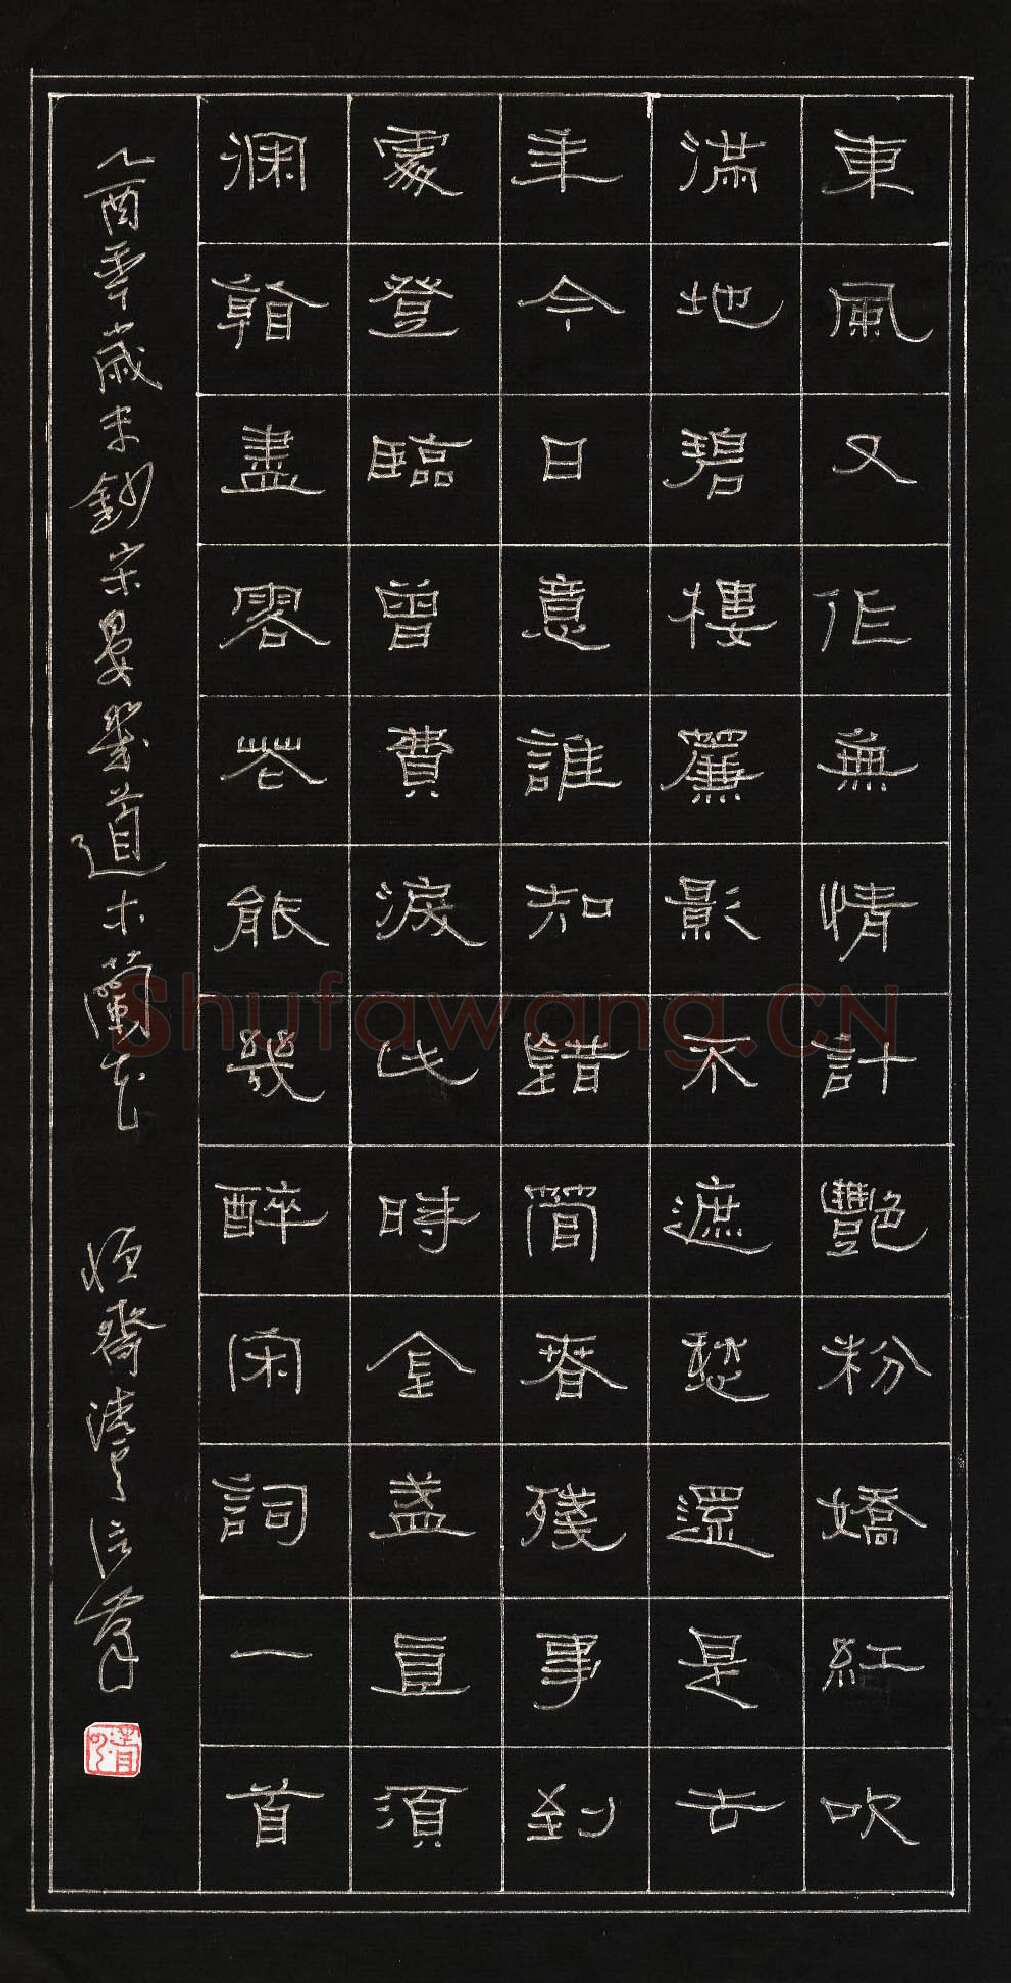 東風又作無情計艷粉嬌紅吹
滿地碧樓簾影不遮愁還是去
年今日意誰知錯管春殘事到
處登臨曾費淚此時金盞直須
深看盡落花能幾醉宋詞一首
乙酉年歲末鈔宋晏幾道木蘭花 恒齋
Shufawang.CN